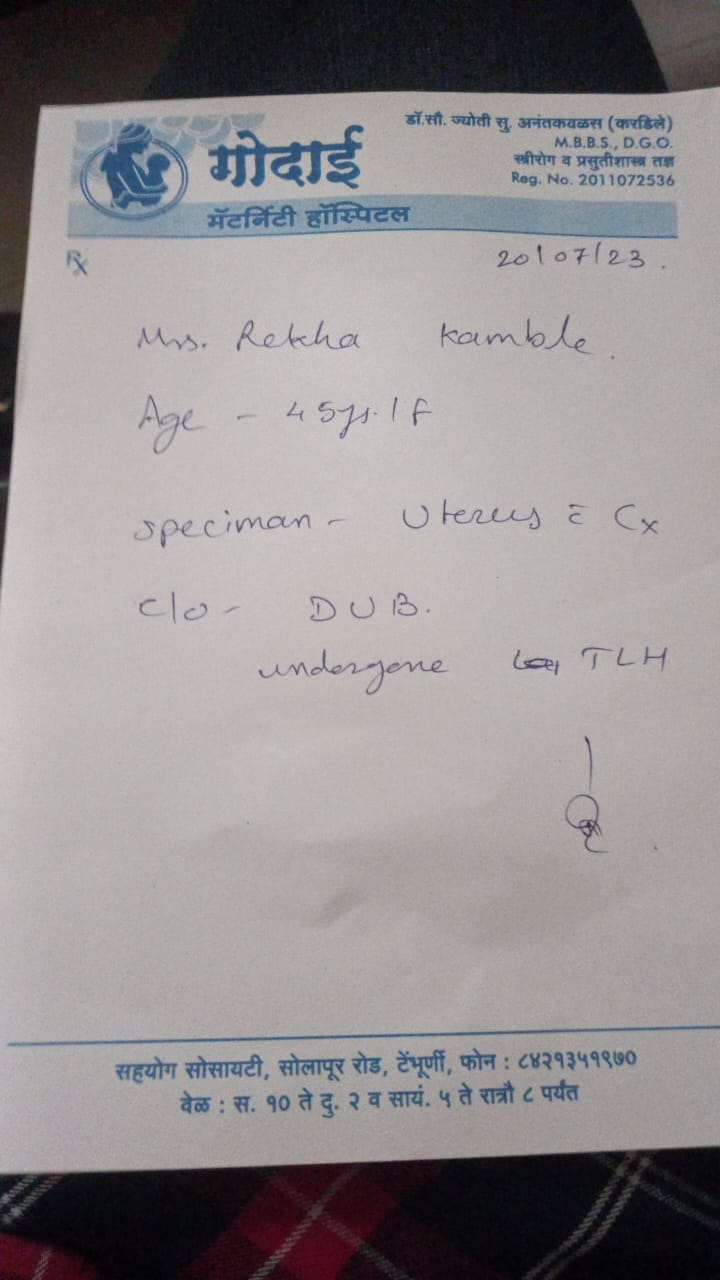 गोदाई
मॅटर्निटी हॉस्पिटल
डॉ.सौ. ज्योती सु. अनंतकवळस (करडिले)
M.B.B.S., D.G.O.
स्त्रीरोग व प्रसुतीशास्त्र तज्ञ
Reg. No. 2011072536
Rx
20/07/23.
Mrs. Rekha Kamble.
Age - 45ys./F
speciman - Uterus c̄ Cx
C/o - DUB.
undergone TLH
सहयोग सोसायटी, सोलापूर रोड, टेंभूर्णी, फोन : ८४२१३५११७०
वेळ : स. १० ते दु. २ व सायं. ५ ते रात्रौ ८ पर्यंत